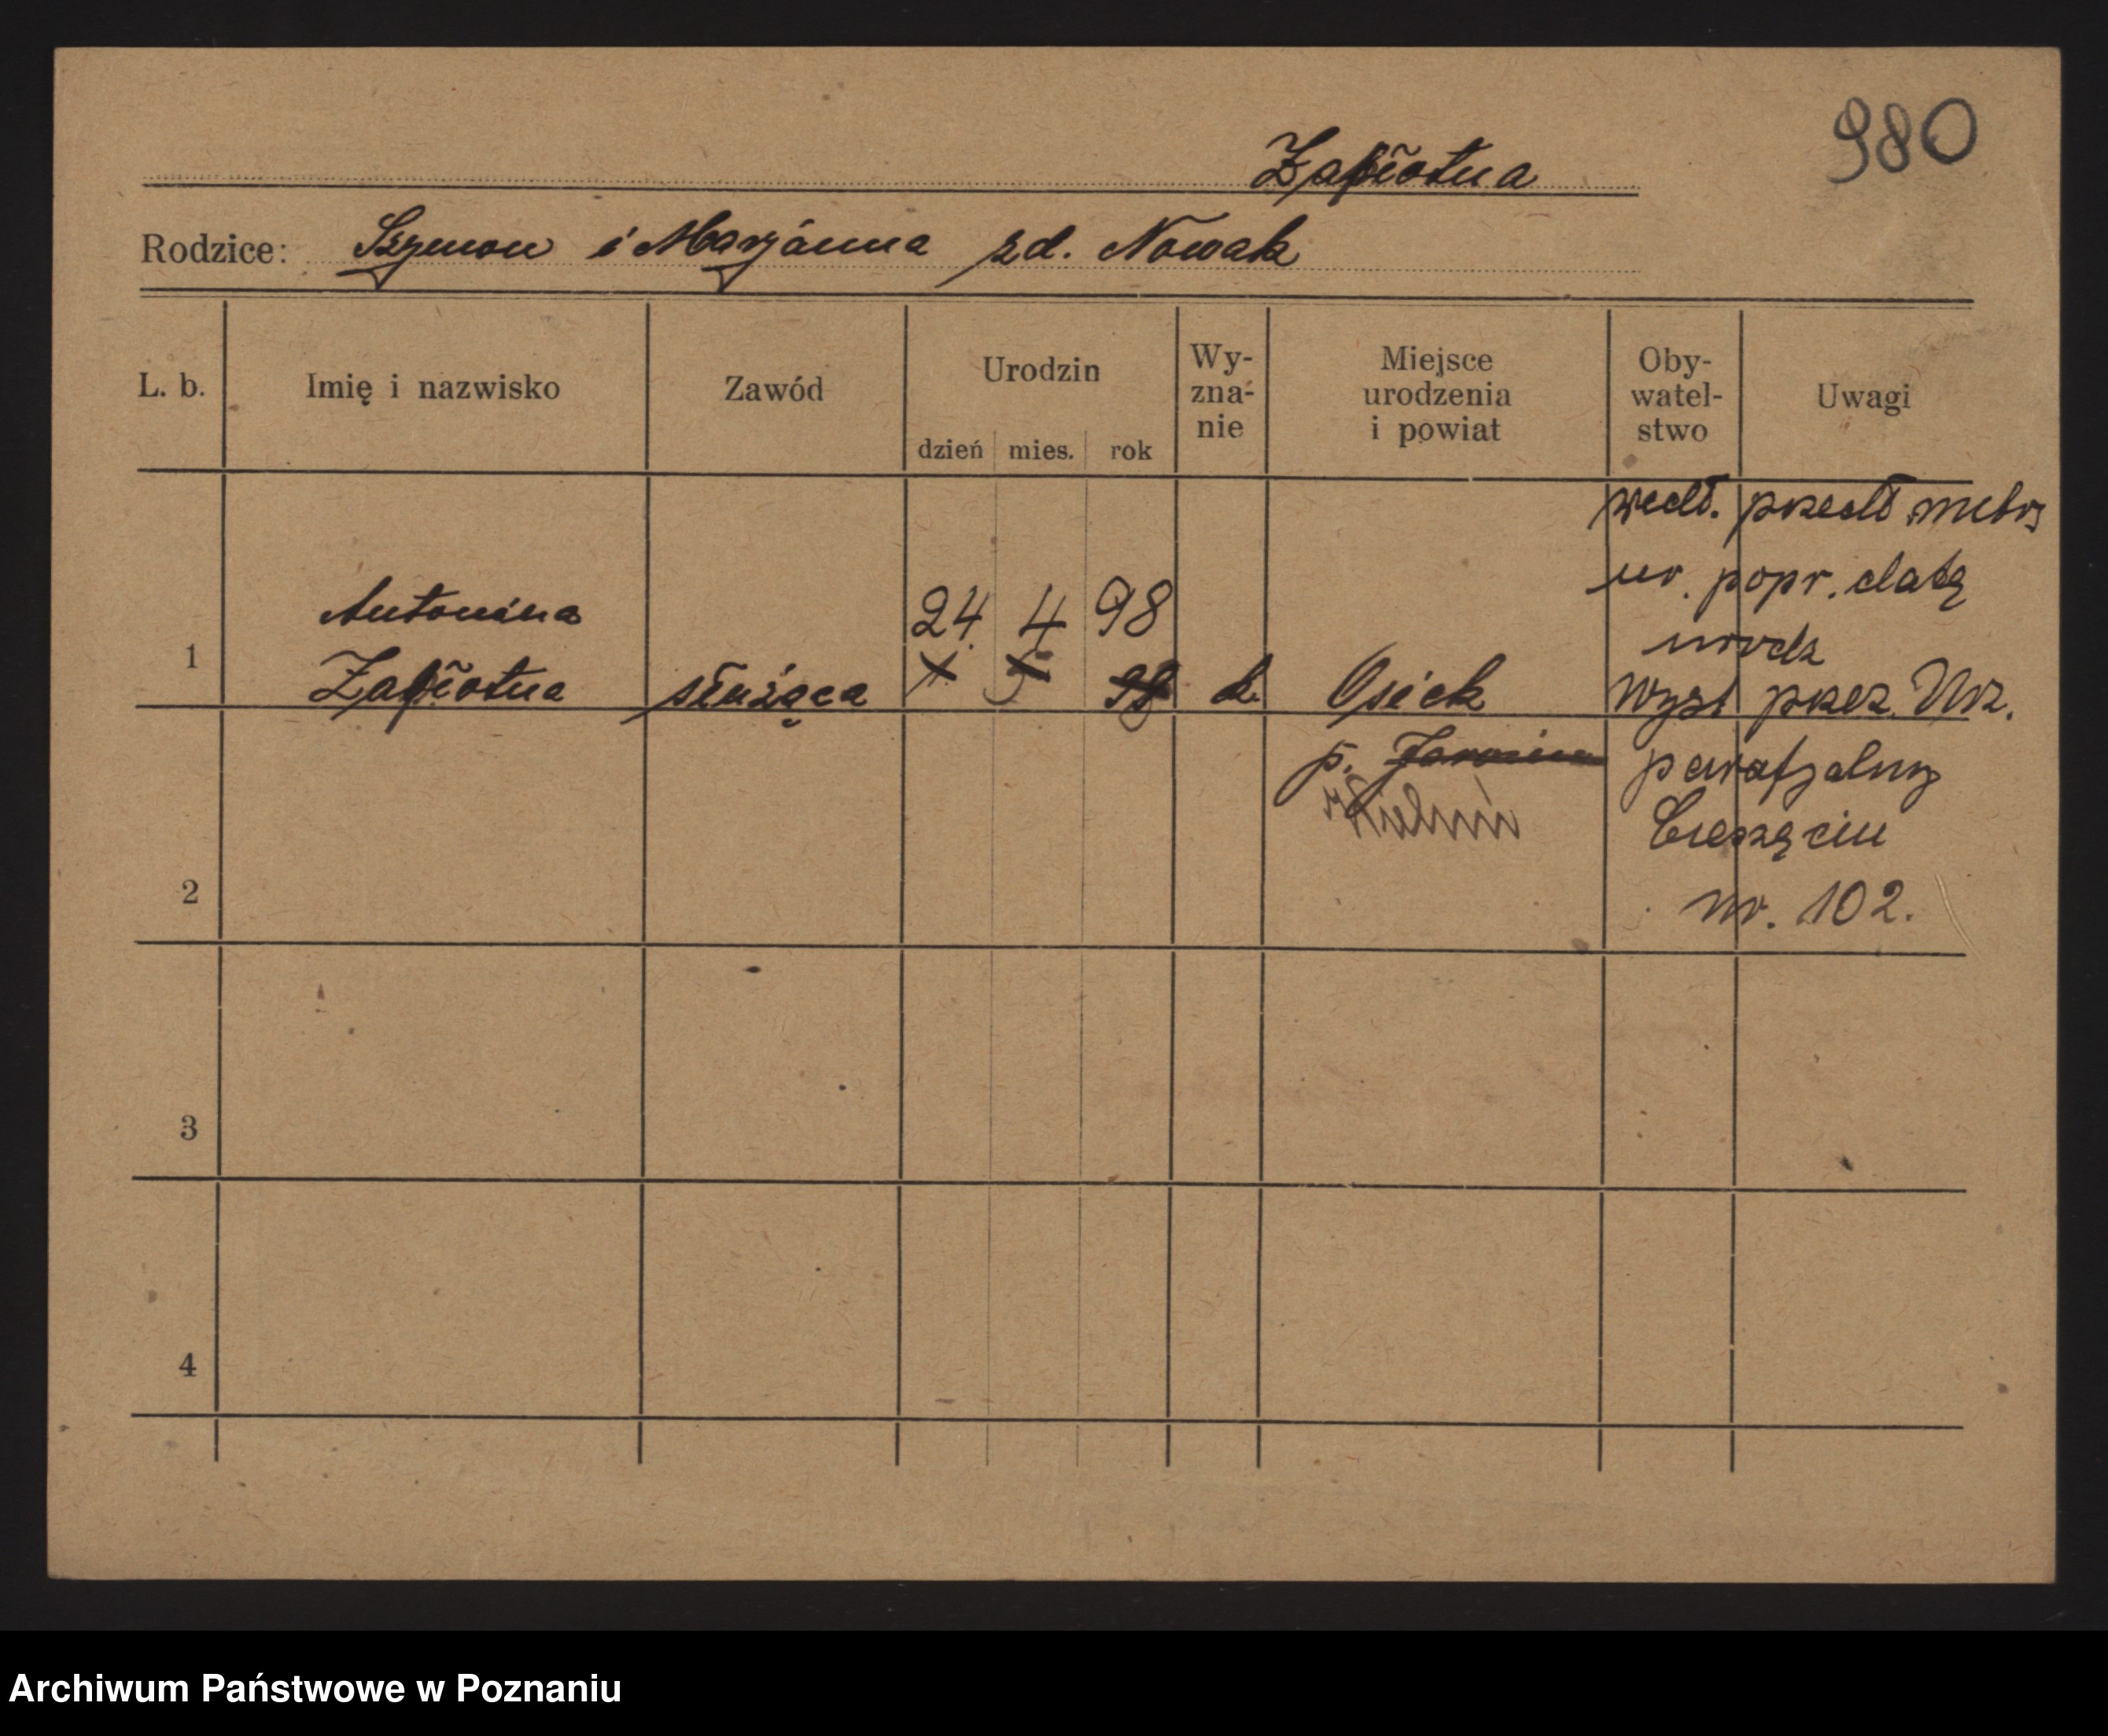 980
Zapłotna
Rodzice: Szymon i Marjanna zd. Nowak
L. b. Imię i nazwisko Zawód Urodzin Wy-
zna-
nie Miejsce
urodzenia
i powiat Oby-
watel-
stwo Uwagi
dzień mies. rok
wedł. przedł metry
ur. popr. datę
urodz
Antonina 24. 4 98
1 Zapłotna służąca k. Osiek wyst przez Urz.
p. Jarocin parafjalny
Cieszęcin
2 nr. 102.
3
4
Archiwum Państwowe w Poznaniu